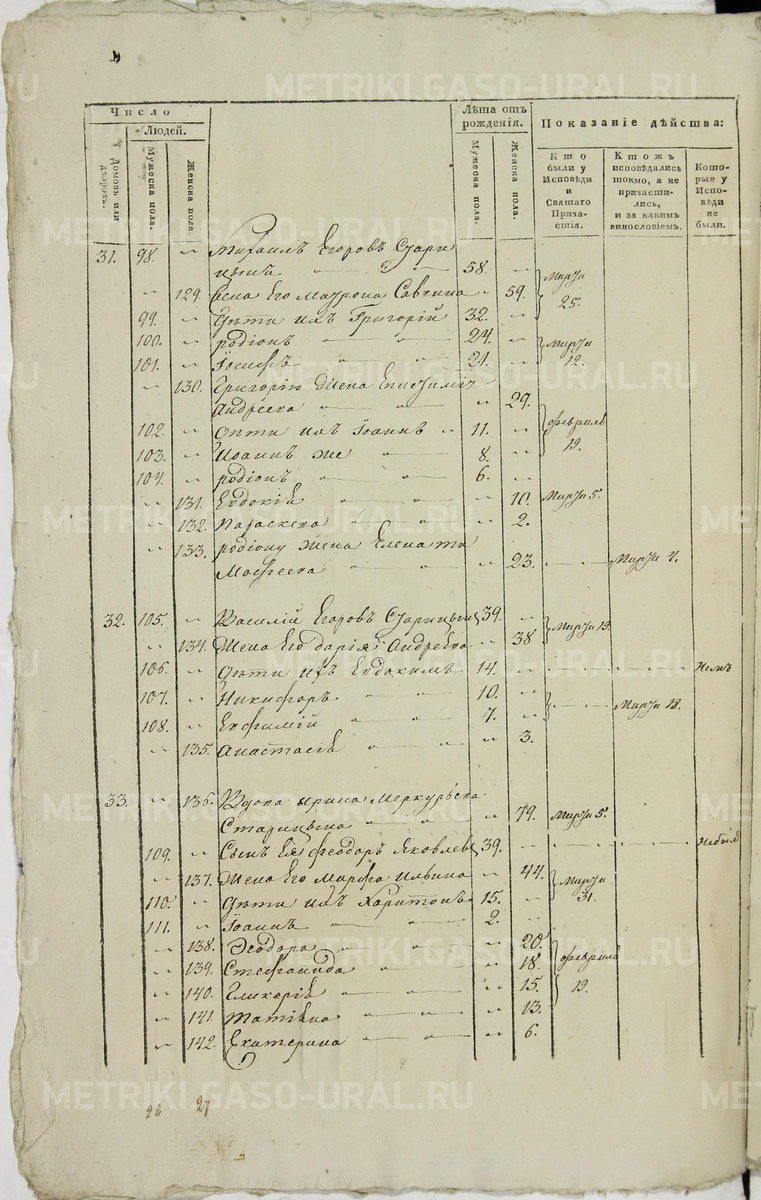 Число
Людей.
Домовъ или дворовъ.
Мужеска пола.
Женска пола.
Лѣта отъ рожденія.
Мужеска пола.
Женска пола.
Показаніе дѣйства:
Кто были у Исповѣди и Святаго Причастія.
Ктожъ исповѣдались токмо, а не причастились, и за какимъ винословіемъ.
Которые у Исповѣди не были.
31. 98. „ Михаилъ Егоровъ Стари
цынъ „ „ 58. „ Марта
„ 129. Жена Его Маурона Саввина „ 59. 25.
99. „ Дѣти ихъ Григорій 32. „
100. „ родіонъ „ „ 24. „ Марта
101. „ Іосифъ „ „ 21. „ 12.
„ 130. Григорію Жена
Андреева „ „ „ 29.
102. „ Дѣти ихъ Іоаннъ „ 11. „ февраль
103. „ Иоаннъ же „ 8. „ 19.
104. „ родіонъ „ „ 6. „
„ 131. Евдокія „ „ „ 10. Марта 5.
„ 132. Параскева „ „ „ 2.
„ 133. родіону Жена
Мосѣева „ „ „ 23. „ Марта 4.
32. 105. „ Василій Егоровъ Старицынъ 39. „ Марта 19.
„ 134. Жена Его дарія Андреева „ 38
106. „ Дѣти ихъ Евдокимъ 14. „
107. „ Никифоръ „ „ 10. „
108. „ Евфимій „ „ 7. „ Марта 18.
„ 135. Анастасія „ „ „ 3.
33. „ 136. Вдова ирина Меркурьева
Старицына „ „ „ 79. Марта 5.
109. „ Сынъ Ея феодоръ Яковлевъ 39. „
„ 137. Жена Его Марфа Ильина „ 44. Марта
110. „ Дѣти ихъ Харитонъ 15. „ 31.
111. „ Іоаннъ „ „ 2. „
„ 138. Феодора „ „ „ 20. февраль
„ 139. Стефанида „ „ 18.
„ 140. Гликерія „ „ „ 15. 19.
„ 141. „ „ „ 13.
„ 142. Екатерина „ „ „ 6.
28 27
METRIKI.GASO-URAL.RU